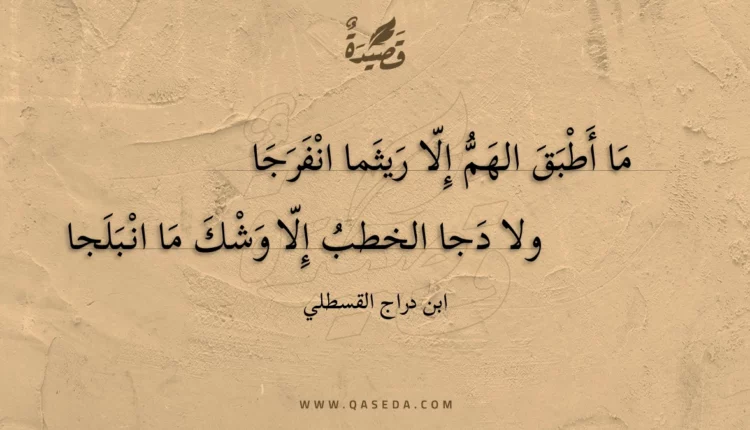 قَصِيْدَةٌ
مَا أَطْبَقَ الهَمُّ إِلّا رَيثَما انْفَرَجَا
ولا دَجا الخطبُ إِلّا وَشْكَ مَا انْبَلَجا
ابن دراج القسطلي
WWW.QASEDA.COM